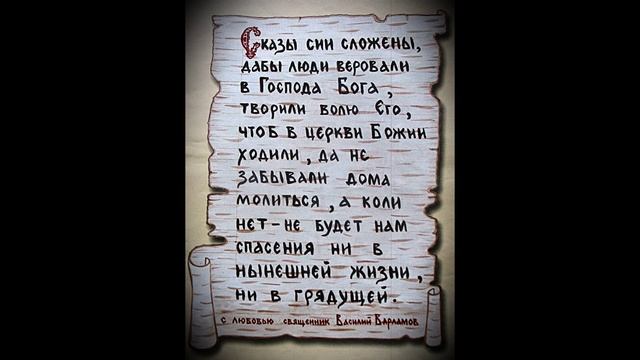 Сказы сии сложены,
дабы люди веровали
в Господа Бога,
творили волю Єго,
чтоб в церкви Божии
ходили, да не
забывали дома
молиться, а коли
нет-не будет нам
спасения ни в
нынешней жизни,
ни в грядущей.
с любовью священник Василий Варламов